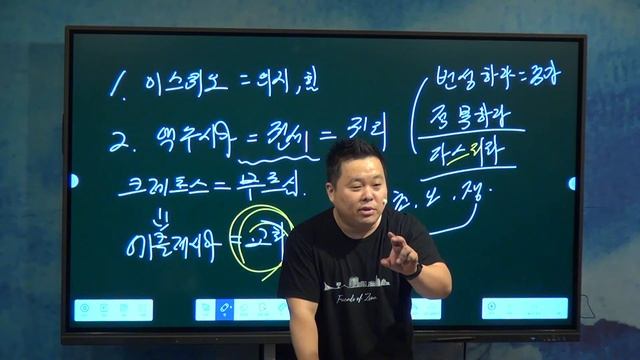 1. 이스퀴오 = 의지, 힘
2. 엑수시아 = 권세 = 권리
크레토스 = 부르심
에클레시아 = 교회
번성하라 =
정복하라
다스리라
초, 보, 정.
Friends of Zion